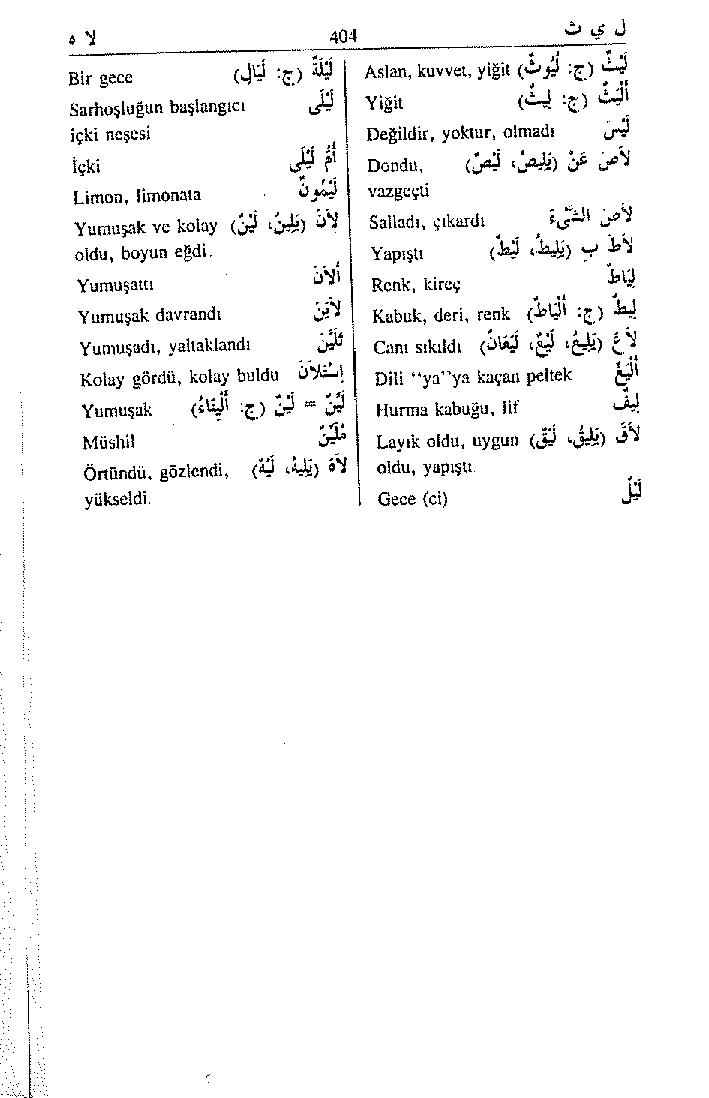 ل ي ث 404 لا ه
لَيْثٌ (ج: لُيُوثٌ) Aslan, kuvvet, yiğit
أَلْيَثُ (ج: لِيثٌ) Yiğit
لَيْسَ Değildir, yoktur, olmadı
لاَصَ عَنْ (يَلِيصُ، لَيْصٌ) Dondu,
vazgeçti
لاَصَ الشَّيْءَ Salladı, çıkardı
لاَطَ ب (يَلِيطُ، لَيْطٌ) Yapıştı
لِيَاطٌ Renk, kireç
لِيطٌ (ج: أَلْيَاطٌ) Kabuk, deri, renk
لاَعَ (يَلِيعُ، لَيْعٌ، لَيَعَانٌ) Canı sıkıldı
أَلْيَغُ Dili "ya"ya kaçan peltek
لِيفٌ Hurma kabuğu, lif
لاَقَ (يَلِيقُ، لَيْقٌ) Layık oldu, uygun
oldu, yapıştı.
لَيْلٌ Gece (ci)
لَيْلَةٌ (ج: لَيَالٍ) Bir gece
لَيْلَى Sarhoşluğun başlangıcı
içki neşesi
أُمُّ لَيْلَى İçki
لَيْمُونٌ Limon, limonata
لاَنَ (يَلِينُ، لَيْنٌ) Yumuşak ve kolay
oldu, boyun eğdi.
أَلاَنَ Yumuşattı
لاَيَنَ Yumuşak davrandı
تَلَيَّنَ Yumuşadı, yaltaklandı
إِسْتَلاَنَ Kolay gördü, kolay buldu
لَيِّنٌ = لَيْنٌ (ج: أَلْيِنَاءُ) Yumuşak
مُلَيِّنٌ Müshil
لاَهَ (يَلِيهُ، لَيْهٌ) Örtündü, gözlendi,
yükseldi.